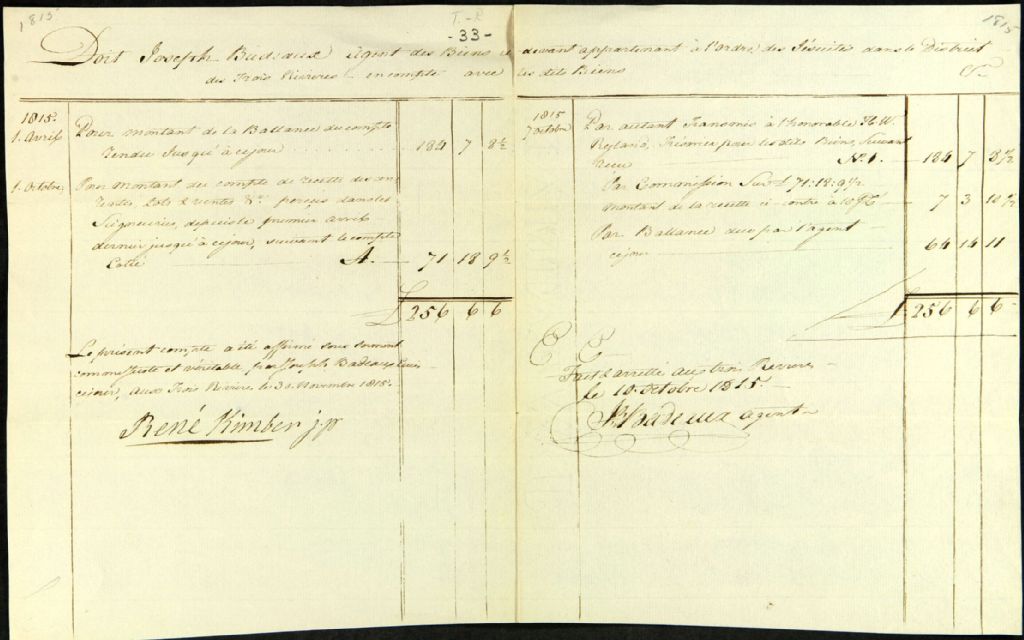 1815
T.-R
-33-
1815
Doit Joseph Badeaux Agent des Biens ci-devant appartenant à l'ordre des Jésuites dans le District
des Trois Rivieres en compte avec les dits Biens Cr
1815.
1. Avril Pour montant de la Ballance du compte
rendu jusqu'à ce jour 184 7 8½
1. Octobre Pour montant du compte de recette des
rentes, Lots & ventes &c. perçus dans les
Seigneuries, depuis le premier avril
dernier jusqu'à ce jour, suivant le compte
Cotté A. 71 18 9½
£ 256 6 6
Le présent compte a été affirmé sous serment
comme juste et véritable par Joseph Badeaux
ce jour, aux Trois Rivieres le 30 Novembre 1815.
René Kimber j.p
1815
7 octobre Par autant transmis à l'honorable H. W.
Ryland, Trésorier pour les dits Biens, suivant
Recu No. 1. 184 7 8½
Par Commission sur £ 71:18:9½
montant de la recette ci-contre à 10 P% 7 3 10½
Par Ballance due par l'agent
ce jour 64 14 11
£ 256 6 6
E E
Fait & arretté aux trois Rivieres
le 10 octobre 1815
Jh Badeaux agent